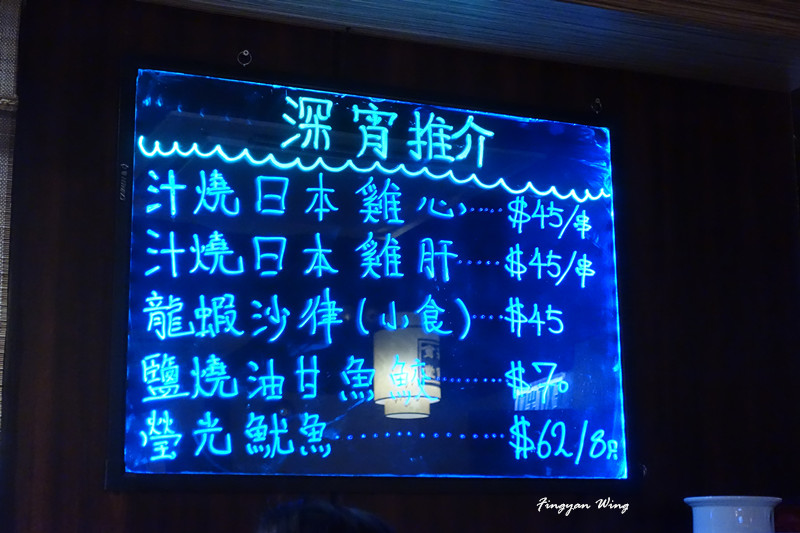 深宵推介
汁燒日本雞心……$45/串
汁燒日本雞肝……$45/串
龍蝦沙律(小食)……$45
鹽燒油甘魚鮫……$70
螢光魷魚……$62/8只
Fingyan Wing